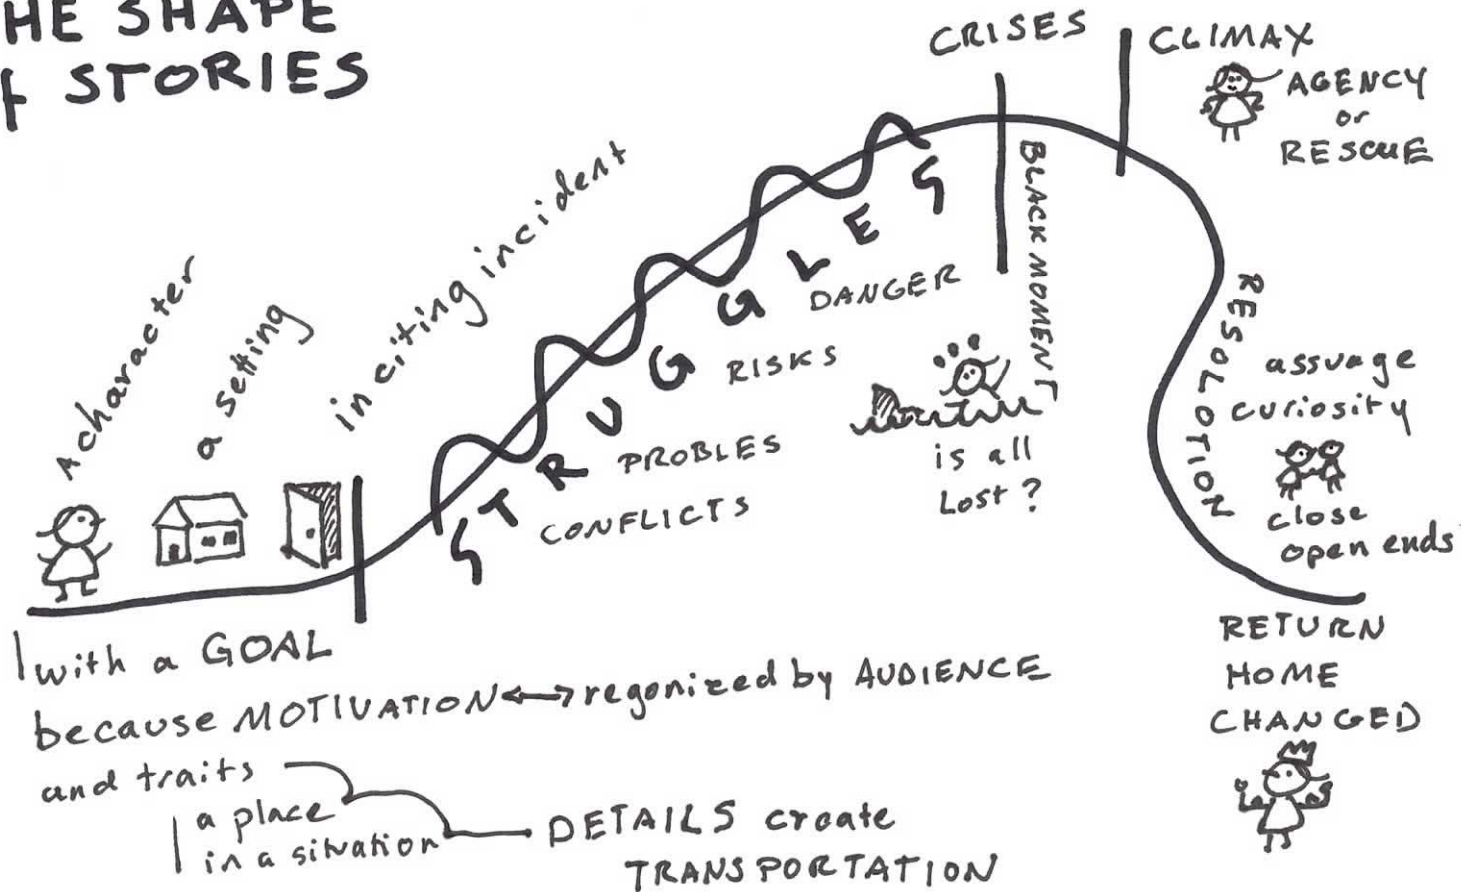 HE SHAPE
F STORIES
A character
a setting
inciting incident
STRUGGLES
CONFLICTS
PROBLES
RISKS
DANGER
CRISES
BLACK MOMENT
is all
Lost?
CLIMAX
AGENCY
or
RESCUE
RESOLOTION
assvage
curiosity
close
open ends
RETURN
HOME
CHANGED
with a GOAL
because MOTIVATION ↔ regonized by AUDIENCE
and traits
a place
in a situation
DETAILS create
TRANSPORTATION